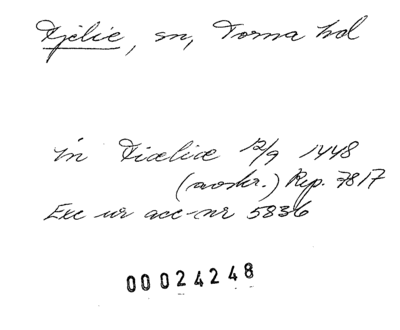 Fjelie, sn, Torna hd
in Fiæliæ 12/9 1448
(avskr.) Rep. 7817
Exc ur acc-nr 5836
00024248